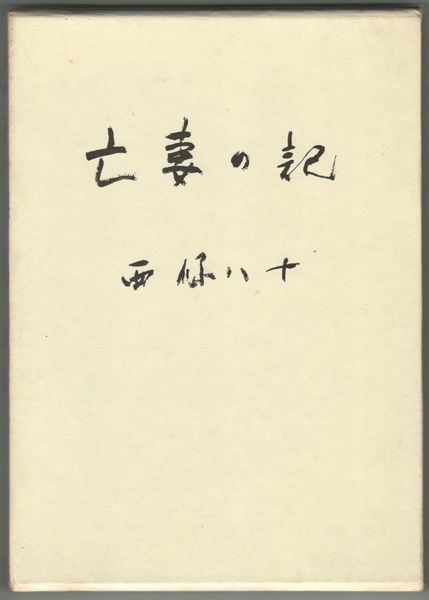 亡妻の記
西條八十